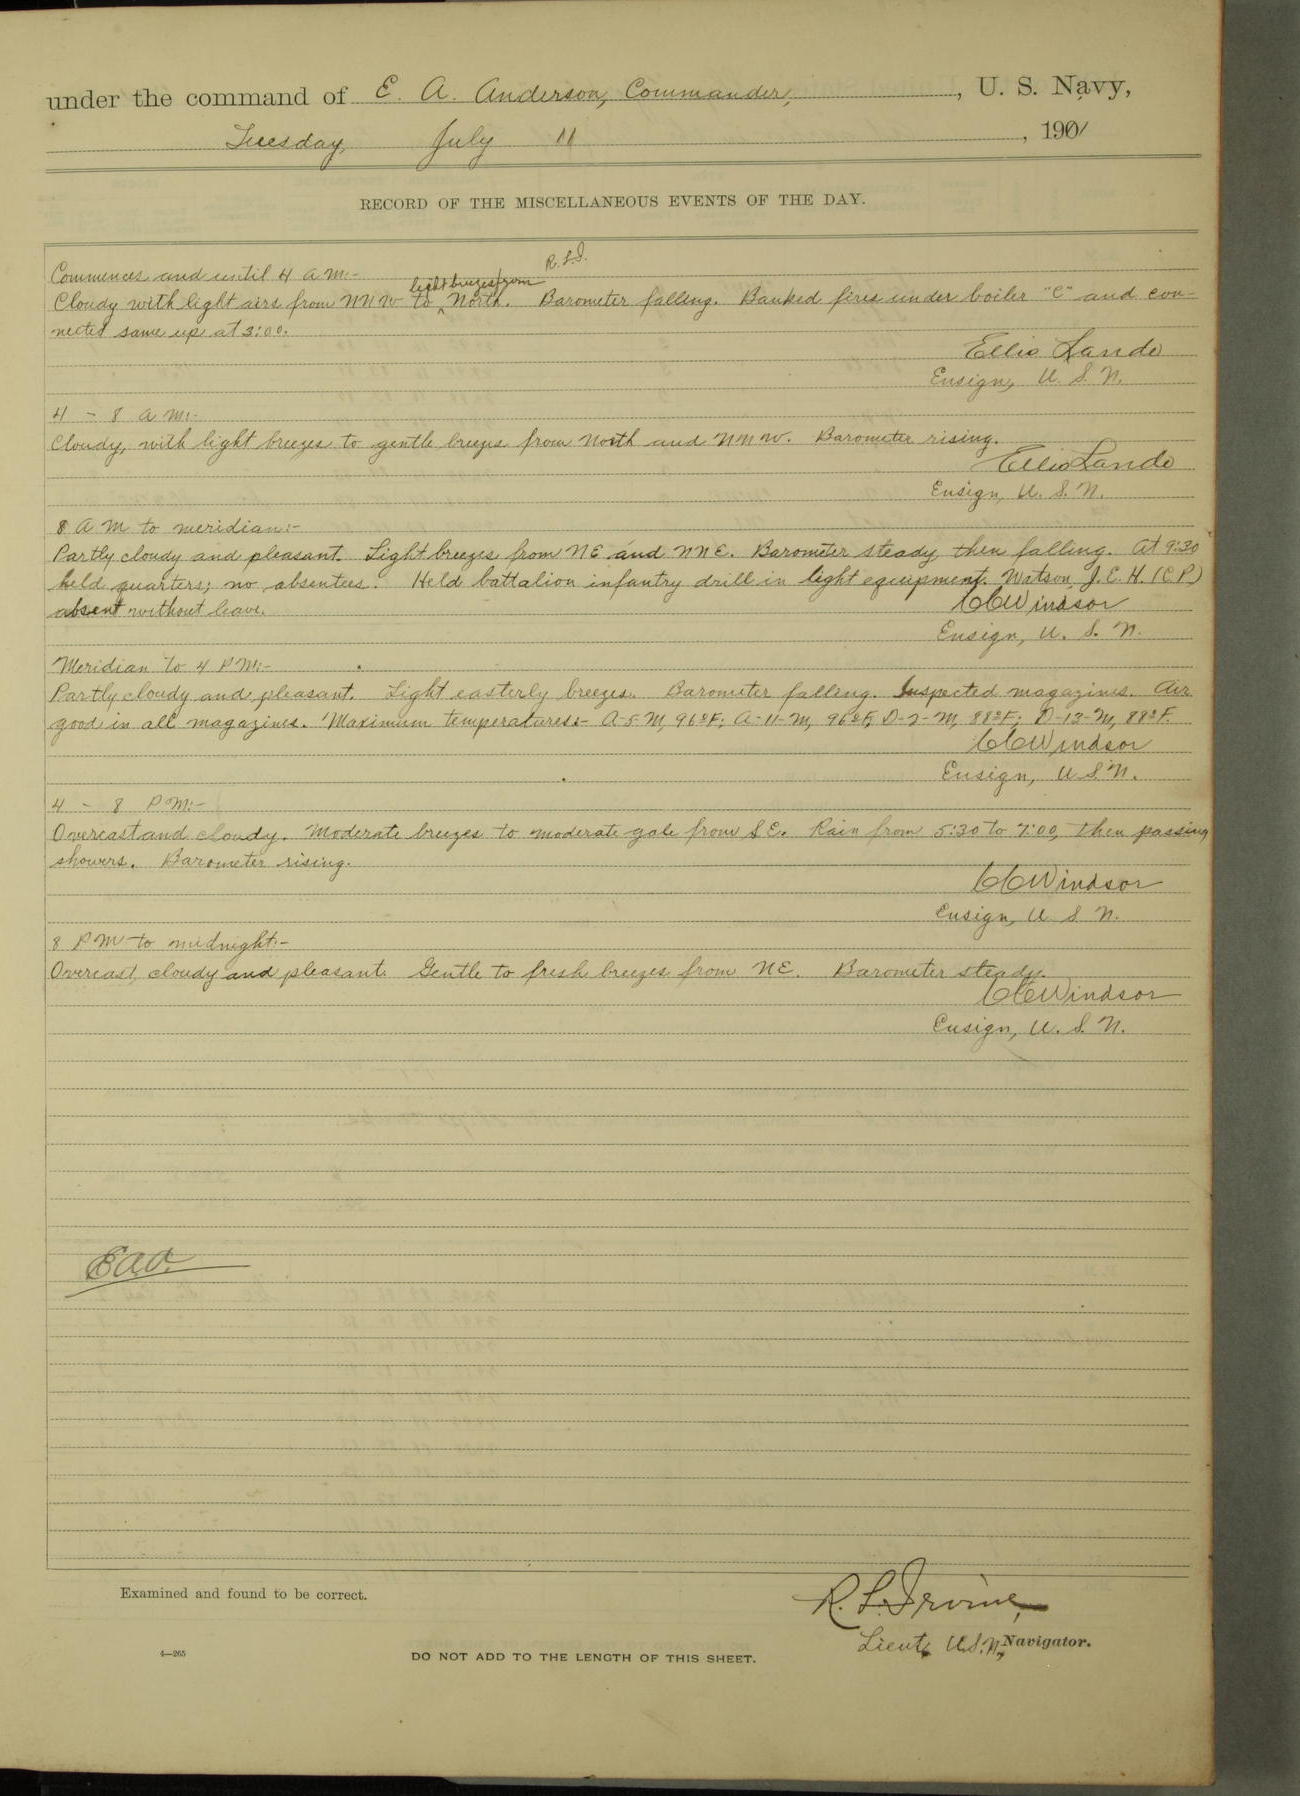 under the command of E. A. Anderson, Commander, , U. S. Navy,
Tuesday, July 11 , 1901
RECORD OF THE MISCELLANEOUS EVENTS OF THE DAY.
R.S.I.
Commences and until 4 A M:-
light breezes from
Cloudy with light airs from NNW to North. Barometer falling. Banked fires under boiler "C" and con-
nected same up at 3:00.
Ellis Lando
Ensign, U. S. N.
4 - 8 A M:-
Cloudy, with light breezes to gentle breezes from North and NNW. Barometer rising.
Ellis Lando
Ensign, U. S. N.
8 A M to meridian:-
Partly cloudy and pleasant. Light breezes from NE and NNE. Barometer steady then falling. At 9:30
held quarters; no absentees. Held battalion infantry drill in light equipment. Watson, J. E. H. (C P)
absent without leave.
CCWindsor
Ensign, U. S. N.
Meridian to 4 P M:-
Partly cloudy and pleasant. Light easterly breezes. Barometer falling. Inspected magazines. Air
good in all magazines. Maximum temperatures:- A-5-M, 96°F; A-11-M, 96°F; D-2-M, 88°F; D-13-M, 88°F.
CCWindsor
Ensign, U.S.N.
4 - 8 P M:-
Overcast and cloudy. Moderate breezes to moderate gale from SE. Rain from 5:30 to 7:00, then passing
showers. Barometer rising.
CCWindsor
Ensign, U. S. N.
8 P M to midnight:-
Overcast, cloudy and pleasant. Gentle to fresh breezes from NE. Barometer steady.
CCWindsor
Ensign, U. S. N.
E.A.A.
Examined and found to be correct.
R. S. Irvine,
Lieut. U.S.N., Navigator.
4—265
DO NOT ADD TO THE LENGTH OF THIS SHEET.